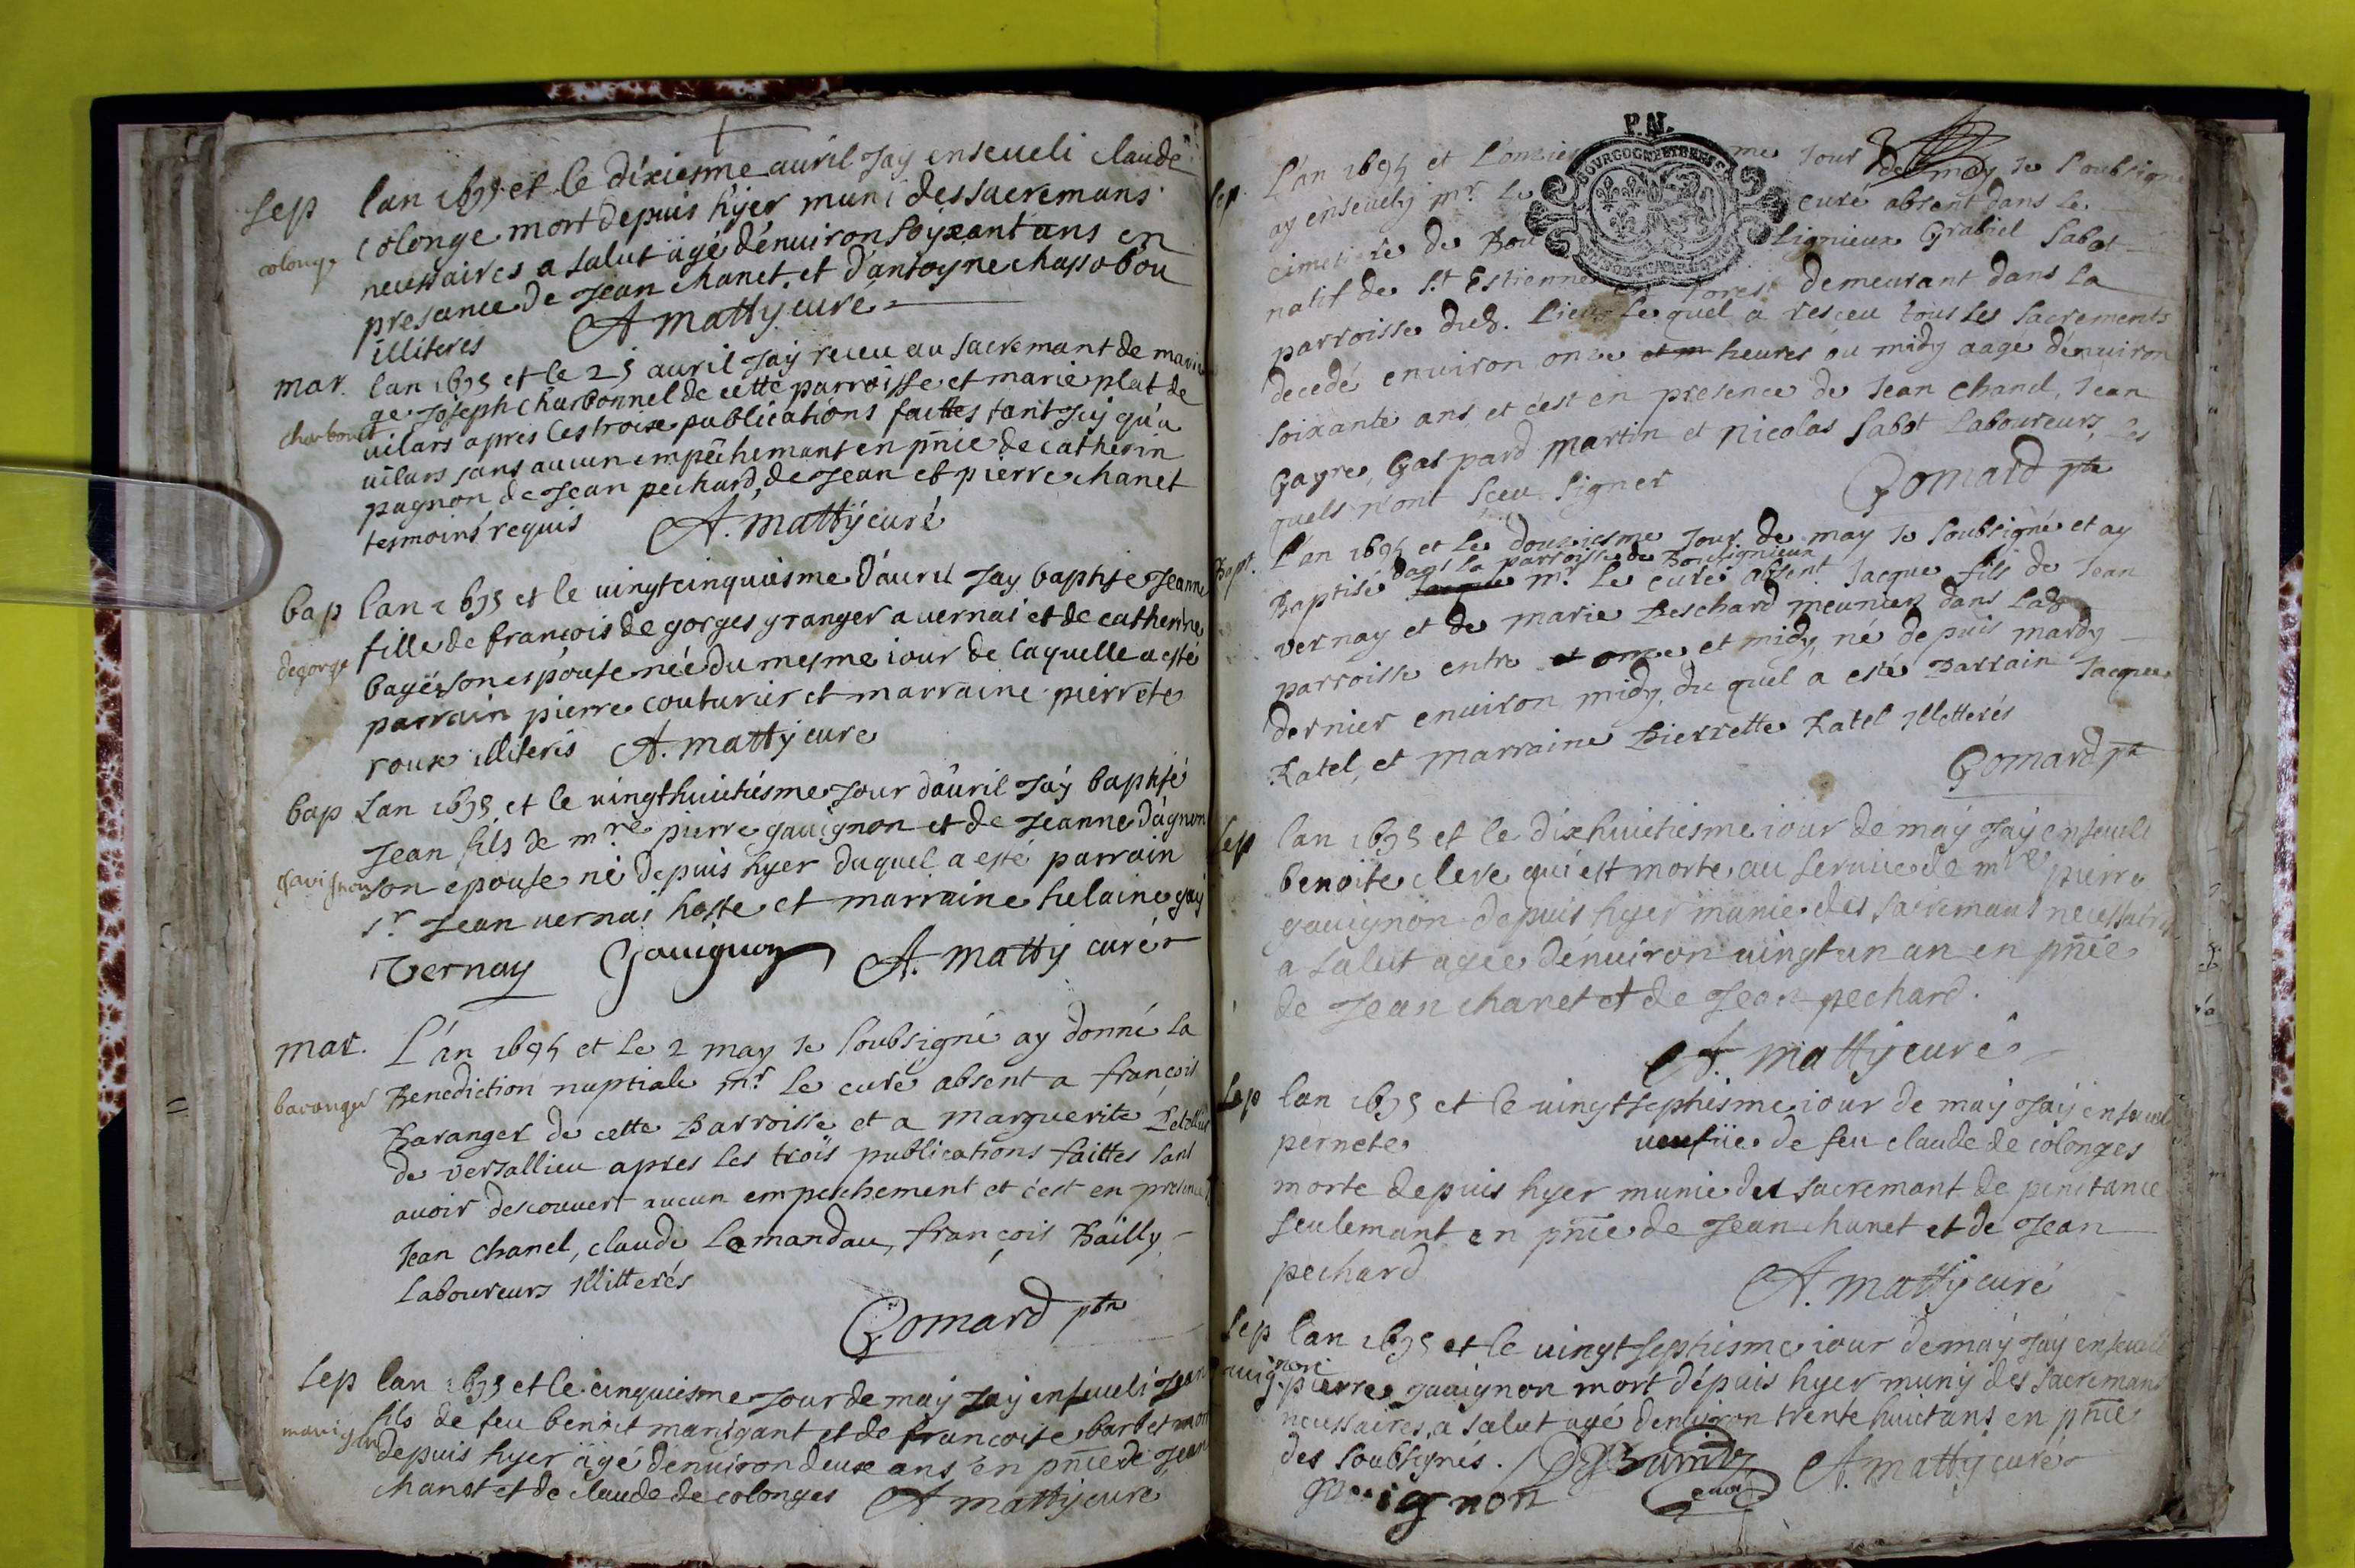 sep lan 1695 et le dixiesme auril Jay enseueli claude
colonge colonge mort depuis hyer muni des sacremans
necessaires a salut agé denuiron soixant ans en
presance de Jean chanet et d'antoyne chassobou
illiteres A mattÿ cure
mar. lan 1695 et le 25 auril Jay receu au sacremant de maria
ge Joseph charbonnel de cette parroisse et marie plat de
charbonel uilars apres les troix publications faittes tant Jcy qu'a
uilars sans aucun empêchemant en pn̄ce de catherin
pagnon, de Jean pechard, de Jean et pierre chanet
tesmoins requis A. mattÿ curé
bap lan 1695 et le uingtcinquiesme d'auril Jay baptise Jeanne
fille de françois de gorges granger a uernai et de catherine
degorge bagés son espouse née du mesme iour de laquelle a esté
parrain pierre couturier et marraine pierrete
roux illiteris A. mattÿ cure
bap Lan 1695 et le uingthuictiesme Jour dauril Jaÿ baptisé
Jean fils de mre pierre gauignon et de Jeanne Dagnon
gavignon son epouse né depuis hyer duquel a esté parrain
sr Jean uernai hoste et marraine helaine gay
Vernay Gauignon A. mattÿ curé
mar. L'an 1695 et le 2 may Je soubsigné ay donné la
Benediction nuptiale mr le curé absent a françois
baranger Baranger de cette Parroisse et a marguerite
de versallieu apres les trois publications faittes sans
auoir descouvert aucun empeschement et c'est en presence
Jean chanel, claude Lamandau, françois Bailly
Laboureurs Jllitterés
Gomard ptre
sep lan 1695 et le cinquiesme Jour de may Jay enseueli Jean
fils de feu benoict marigant et de francoise barbet mort
marigan depuis hyer agé denuiron deux ans en pn̄ce de Jean
chanet et de claude de colonges A mattÿ curé
P.M.
sep. L'an 1695 et L'onzie me Jour de may Je soubsigné
ay enseuely mr. Le curé absent dans le
cimetiere de Bou Lignieux Grabiel Sabot
natif de St Estienne en forest demeurant dans la
parroisse dud. Lieu Lequel a resceu tous les sacrements
decedé enuiron onze heures ou midy aage denuiron
soixante ans, et c'est en presence de Jean chanel, Jean
Gayre, Gaspard Martin et Nicolas Sabot Laboureurs, Les
quels n'ont sceu signer Gomard ptre
Bapt. L'an 1695 et le douziesme Jour de may Je soubsigné et ay
dans la parroisse de Boulignieux
Baptisé Jacque mr. Le curé absent Jacque fils de Jean
vernay et de marie Peschard meunier dans lad
parroisse entre et onze et midy, né depuis mardy
dernier enuiron midy, du quel a esté Parrain Jacque
Ratel, et marraine Pierrette Ratel Jlletterés
Gomard ptre
sep lan 1695 et le dixhuictiesme iour de may Jay enseueli
benoite clere qui est morte au seruice de mre pierre
gauignon depuis hyer munie des sacremans necessaires
a salut agée denuiron uingt un an en pn̄ce
de Jean chanet et de Jean pechard.
A. mattÿ curé
sep lan 1695 et le uingtseptiesme iour de may Jay enseueli
pernete ueufue de feu claude de colonges
morte depuis hyer munie des sacremant de penitance
seulemant en pn̄ce de Jean chanet et de Jean
pechard A. mattÿ curé
sep lan 1695 et le uingtseptiesme iour de may Jay enseueli
pierre gauignon mort depuis hyer muny des sacremans
necessaires a salut agé denuiron trente huict ans en pn̄ce
des soubsignés. A. mattÿ curé
gauignon